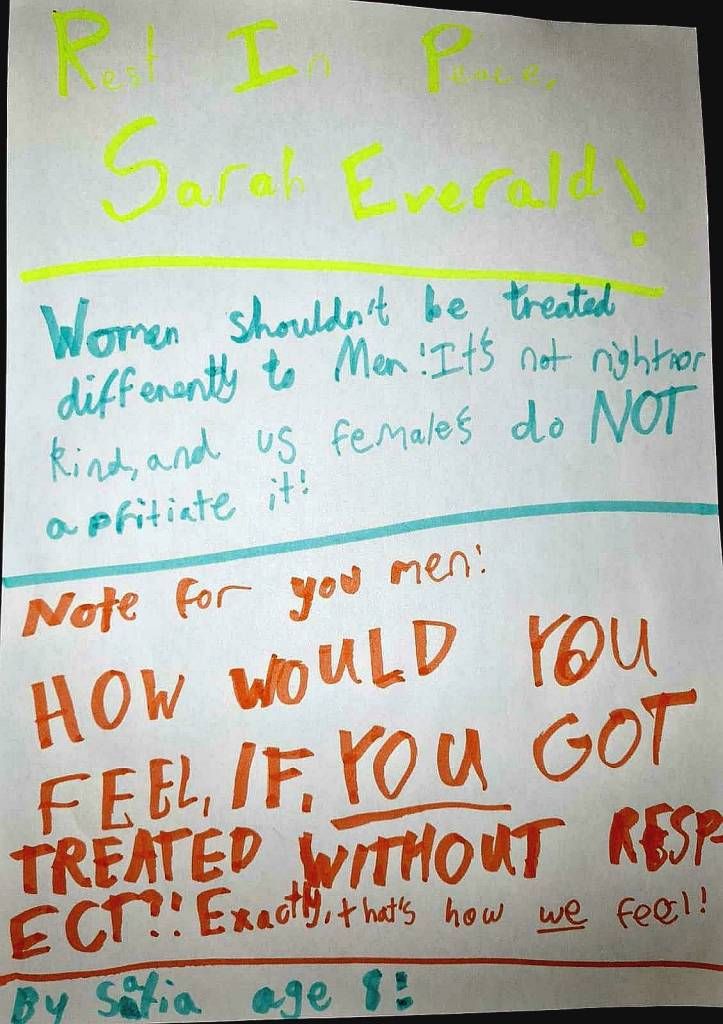 Rest In Peace,
Sarah Everald!
Women shouldn't be treated
differently to Men! It's not right nor
kind, and us females do NOT
apritiate it!
Note for you men:
HOW WOULD YOU
FEEL, IF, YOU GOT
TREATED WITHOUT RESP-
ECT?! Exactly, that's how we feel!
By Safia age 8!